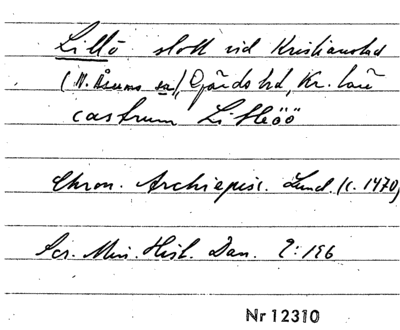 Lillö slott vid Kristianstad
(N. Åsums sn), Gärds hd, Kr. län
castrum Litleöö
Chron. Archiepisc. Lund. (c. 1470)
Scr. Min. Hist. Dan. 2:196
Nr 12310